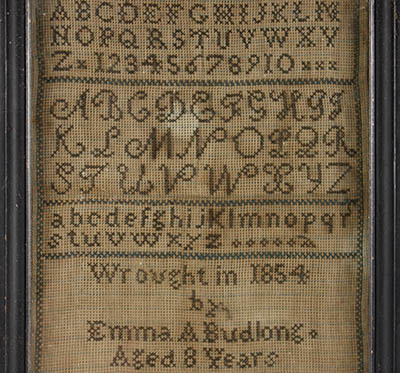 ABCDEFGHIJKLM
NOPQRSTUVWXY
Z 12345678910
ABCDEFGHIJ
KLMNOPQR
STUVWXYZ
abcdefghijKlmnopqr
stuvwxyz
Wrought in 1854
by
Emma A Budlong
Aged 8 Years